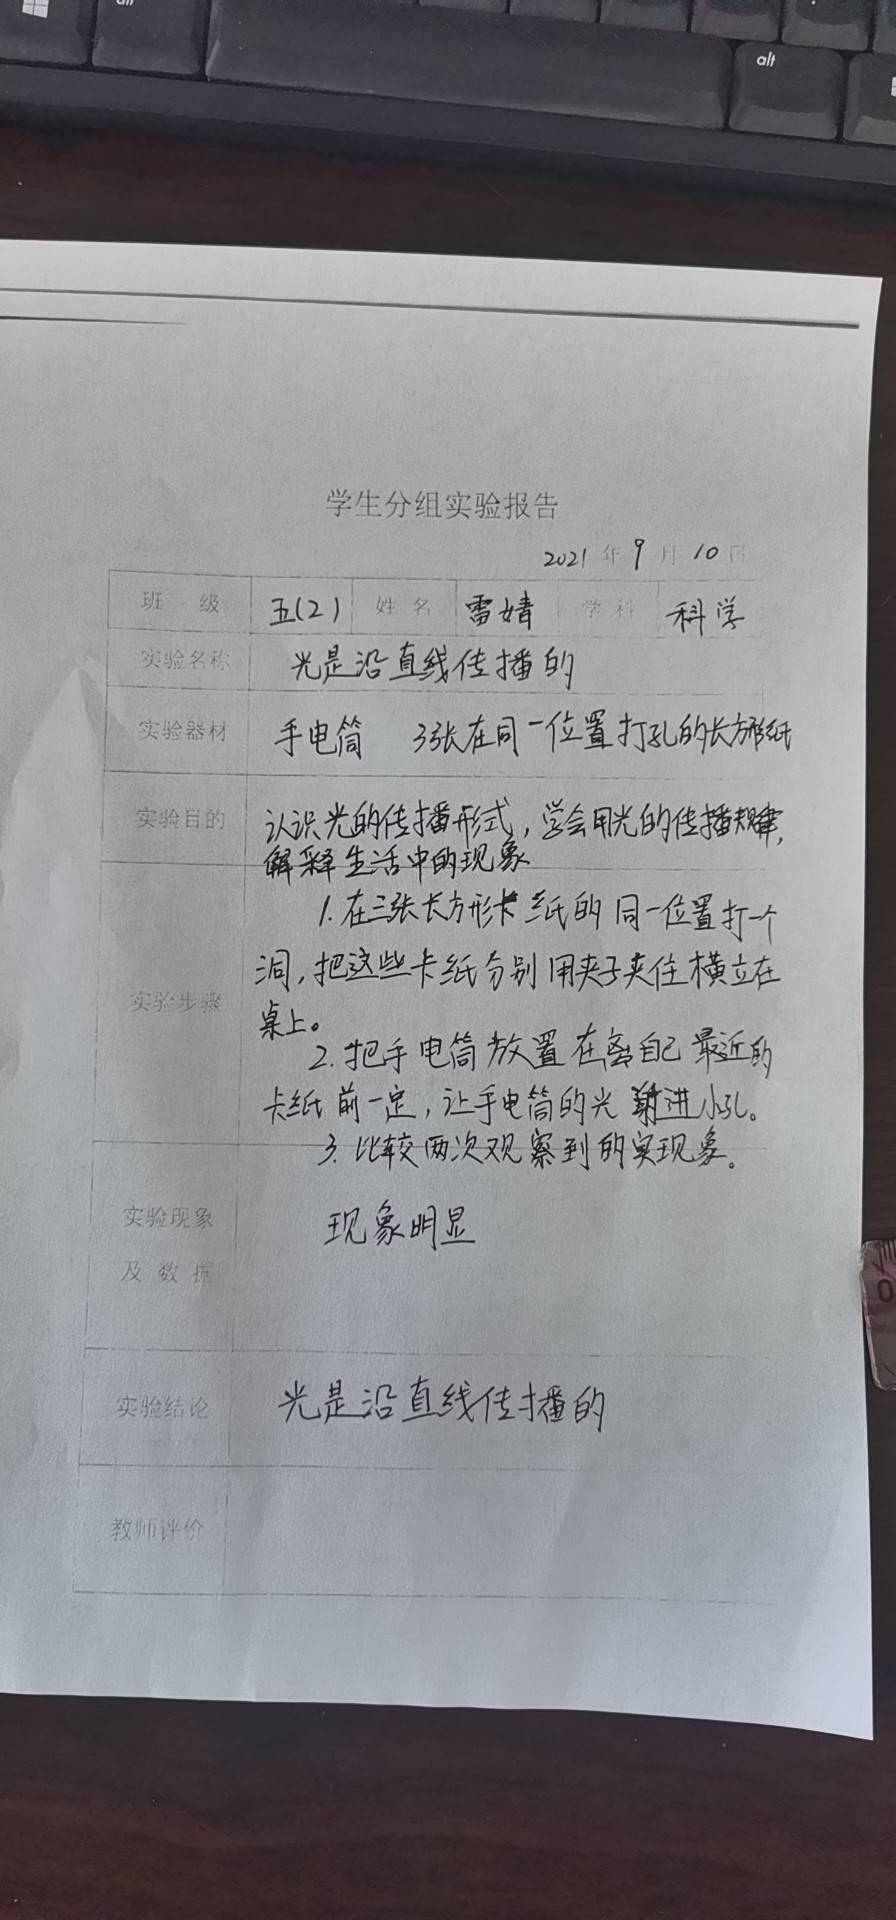 alt
学生分组实验报告
2021年9月10日
班级 五(2) 姓名 雷婧 学科 科学
实验名称 光是沿直线传播的
实验器材 手电筒 3张在同一位置打孔的长方形纸
实验目的 认识光的传播形式，学会用光的传播规律，
解释生活中的现象
实验步骤
1.在三张长方形卡纸的同一位置打一个
洞，把这些卡纸分别用夹子夹住横立在
桌上。
2.把手电筒放置在离自己最近的
卡纸前一定，让手电筒的光射进小孔。
3.比较两次观察到的实现象。
实验现象 现象明显
及数据
实验结论 光是沿直线传播的
教师评价
0